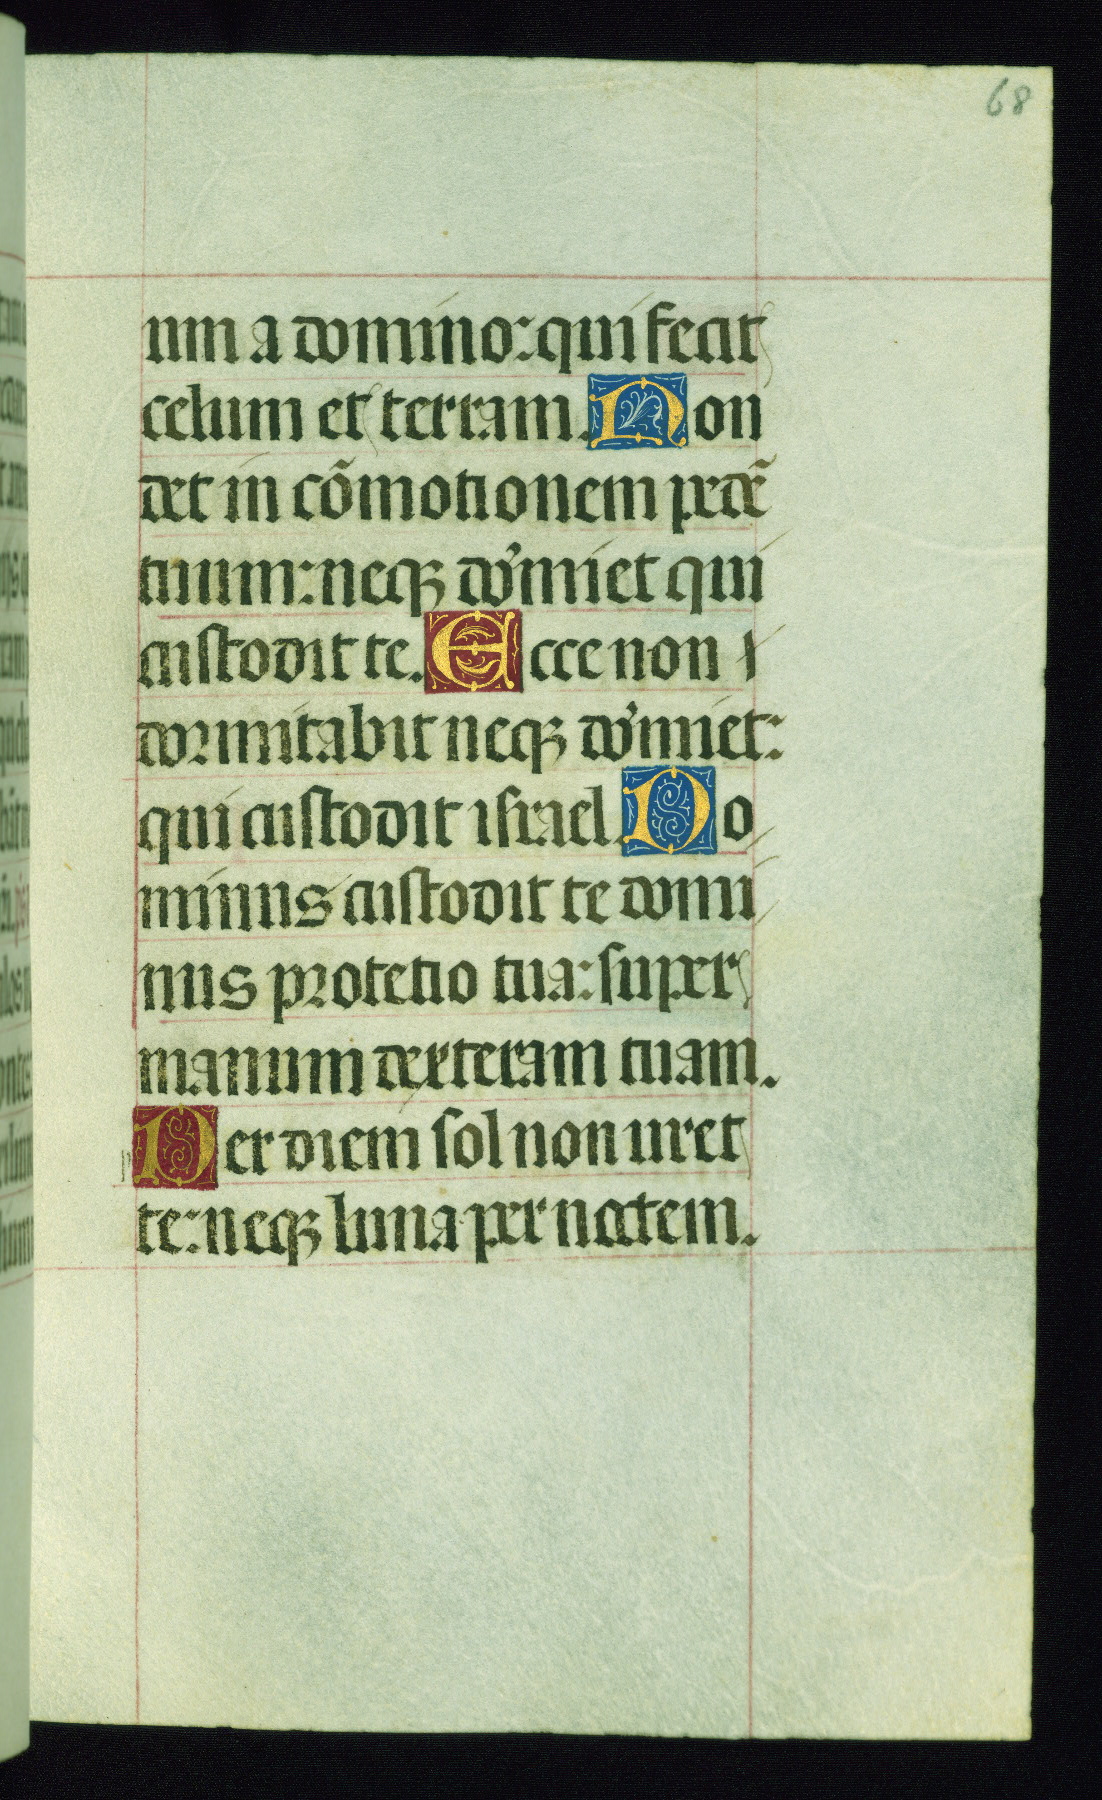 68
um a domino: qui fecit
celum et terram. Non
det in cõmotionem pedẽ
tuum: neqꝫ do᷑miet qui
custodit te. Ecce non
dormitabit neqꝫ do᷑miet:
qui custodit israel. Do
minus custodit te domi
nus protetio tua: super
manum dexteram tuam.
Per diem sol non uret
te: neqꝫ luna per noctem.